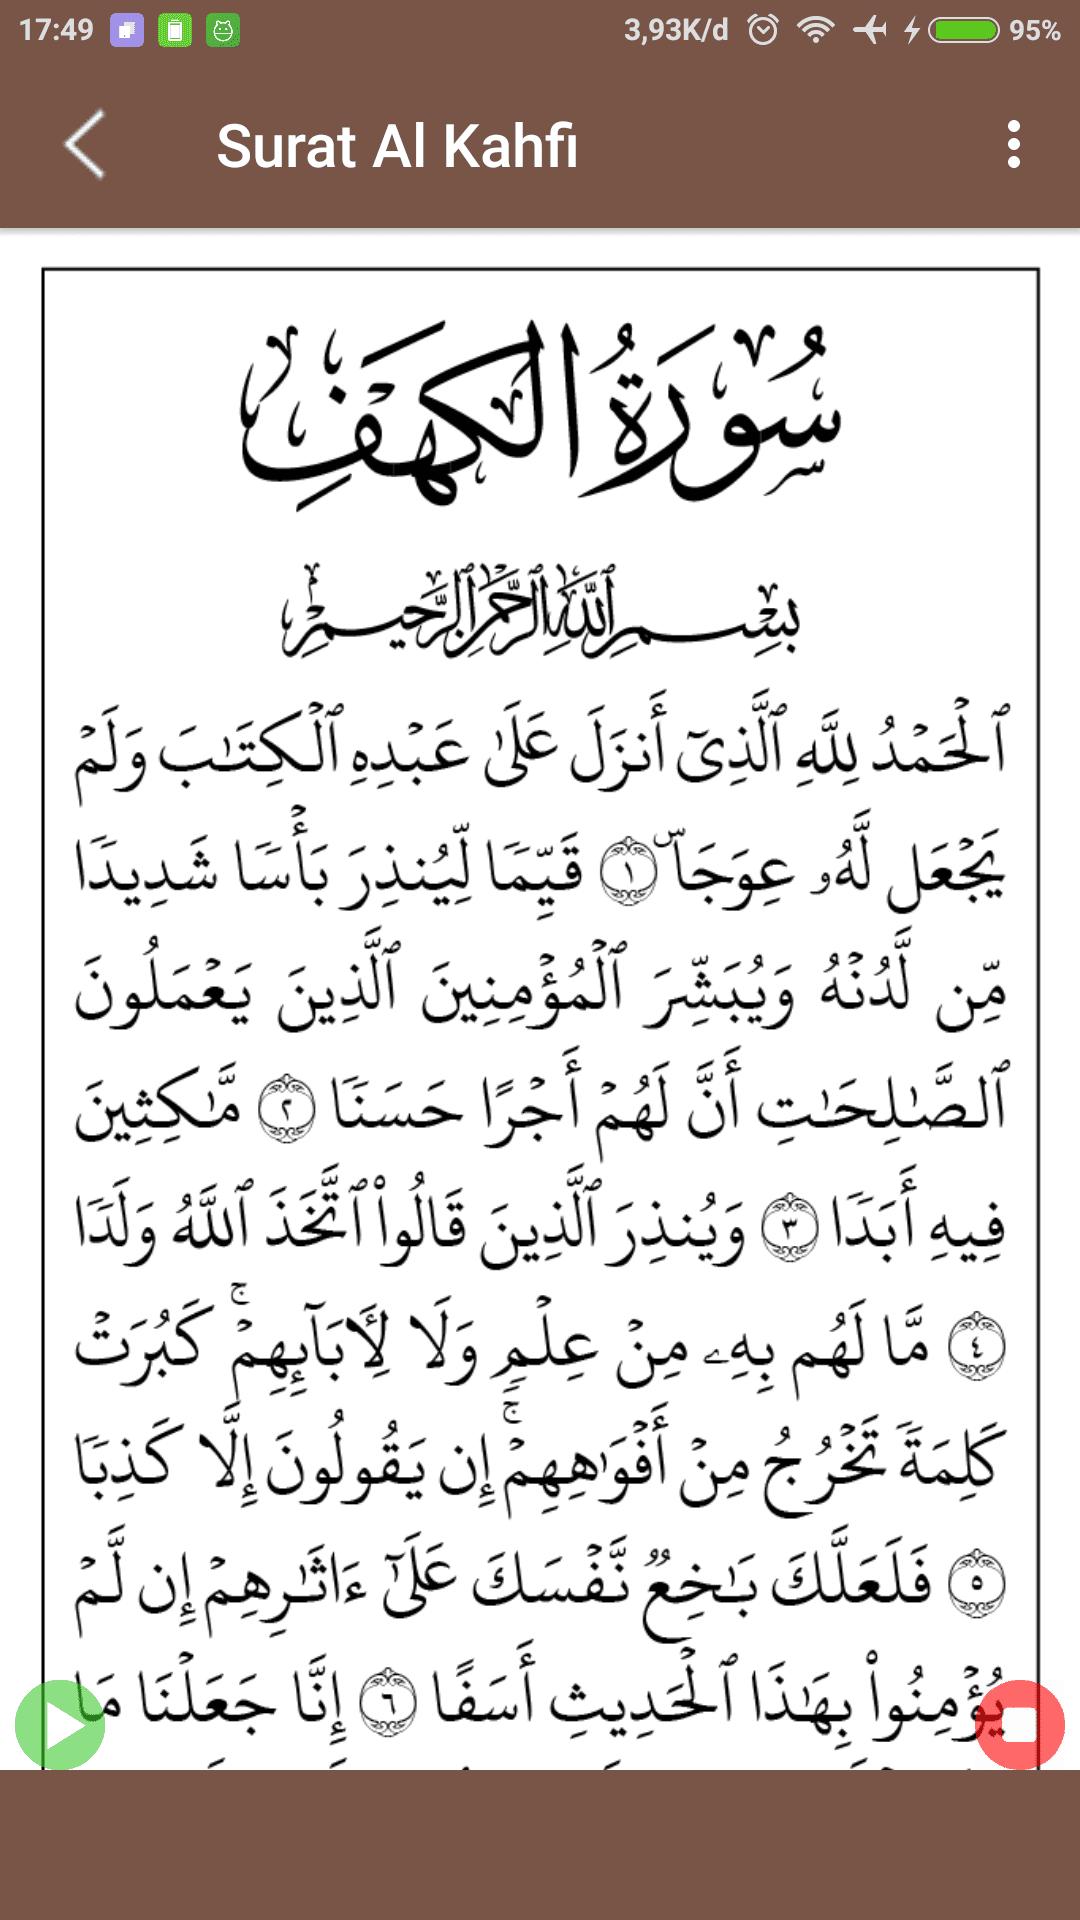 17:49 3,93K/d 95%
Surat Al Kahfi
سُورَةُ الكَهْفِ
بِسْمِ ٱللَّهِ ٱلرَّحْمَٰنِ ٱلرَّحِيمِ
ٱلْحَمْدُ لِلَّهِ ٱلَّذِىٓ أَنزَلَ عَلَىٰ عَبْدِهِ ٱلْكِتَـٰبَ وَلَمْ
يَجْعَل لَّهُۥ عِوَجَاۜ ١ قَيِّمًا لِّيُنذِرَ بَأْسًا شَدِيدًا
مِّن لَّدُنْهُ وَيُبَشِّرَ ٱلْمُؤْمِنِينَ ٱلَّذِينَ يَعْمَلُونَ
ٱلصَّـٰلِحَـٰتِ أَنَّ لَهُمْ أَجْرًا حَسَنًا ٢ مَّـٰكِثِينَ
فِيهِ أَبَدًا ٣ وَيُنذِرَ ٱلَّذِينَ قَالُوا۟ ٱتَّخَذَ ٱللَّهُ وَلَدًا
٤ مَّا لَهُم بِهِۦ مِنْ عِلْمٍ وَلَا لِـَٔابَآئِهِمْ ۚ كَبُرَتْ
كَلِمَةً تَخْرُجُ مِنْ أَفْوَٰهِهِمْ ۚ إِن يَقُولُونَ إِلَّا كَذِبًا
٥ فَلَعَلَّكَ بَـٰخِعٌ نَّفْسَكَ عَلَىٰٓ ءَاثَـٰرِهِمْ إِن لَّمْ
يُؤْمِنُوا۟ بِهَـٰذَا ٱلْحَدِيثِ أَسَفًا ٦ إِنَّا جَعَلْنَا مَا